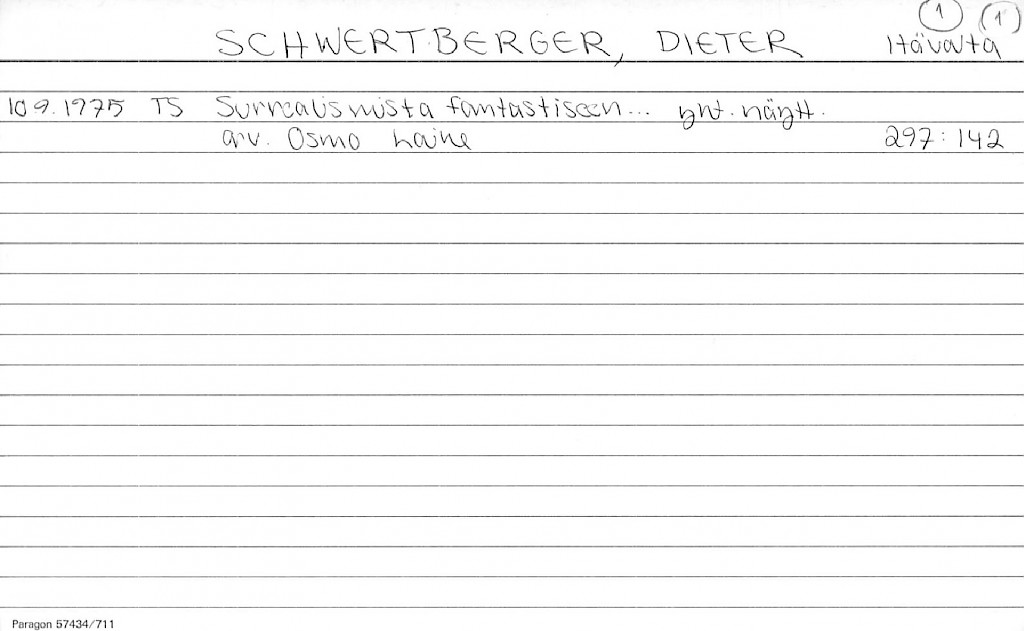 1 (1)
SCHWERTBERGER, DIETER Itävalta
10.9.1975 TS Surrealismista fantastiseen... yht. näytt.
arv. Osmo Laine 297:142
Paragon 57434/711